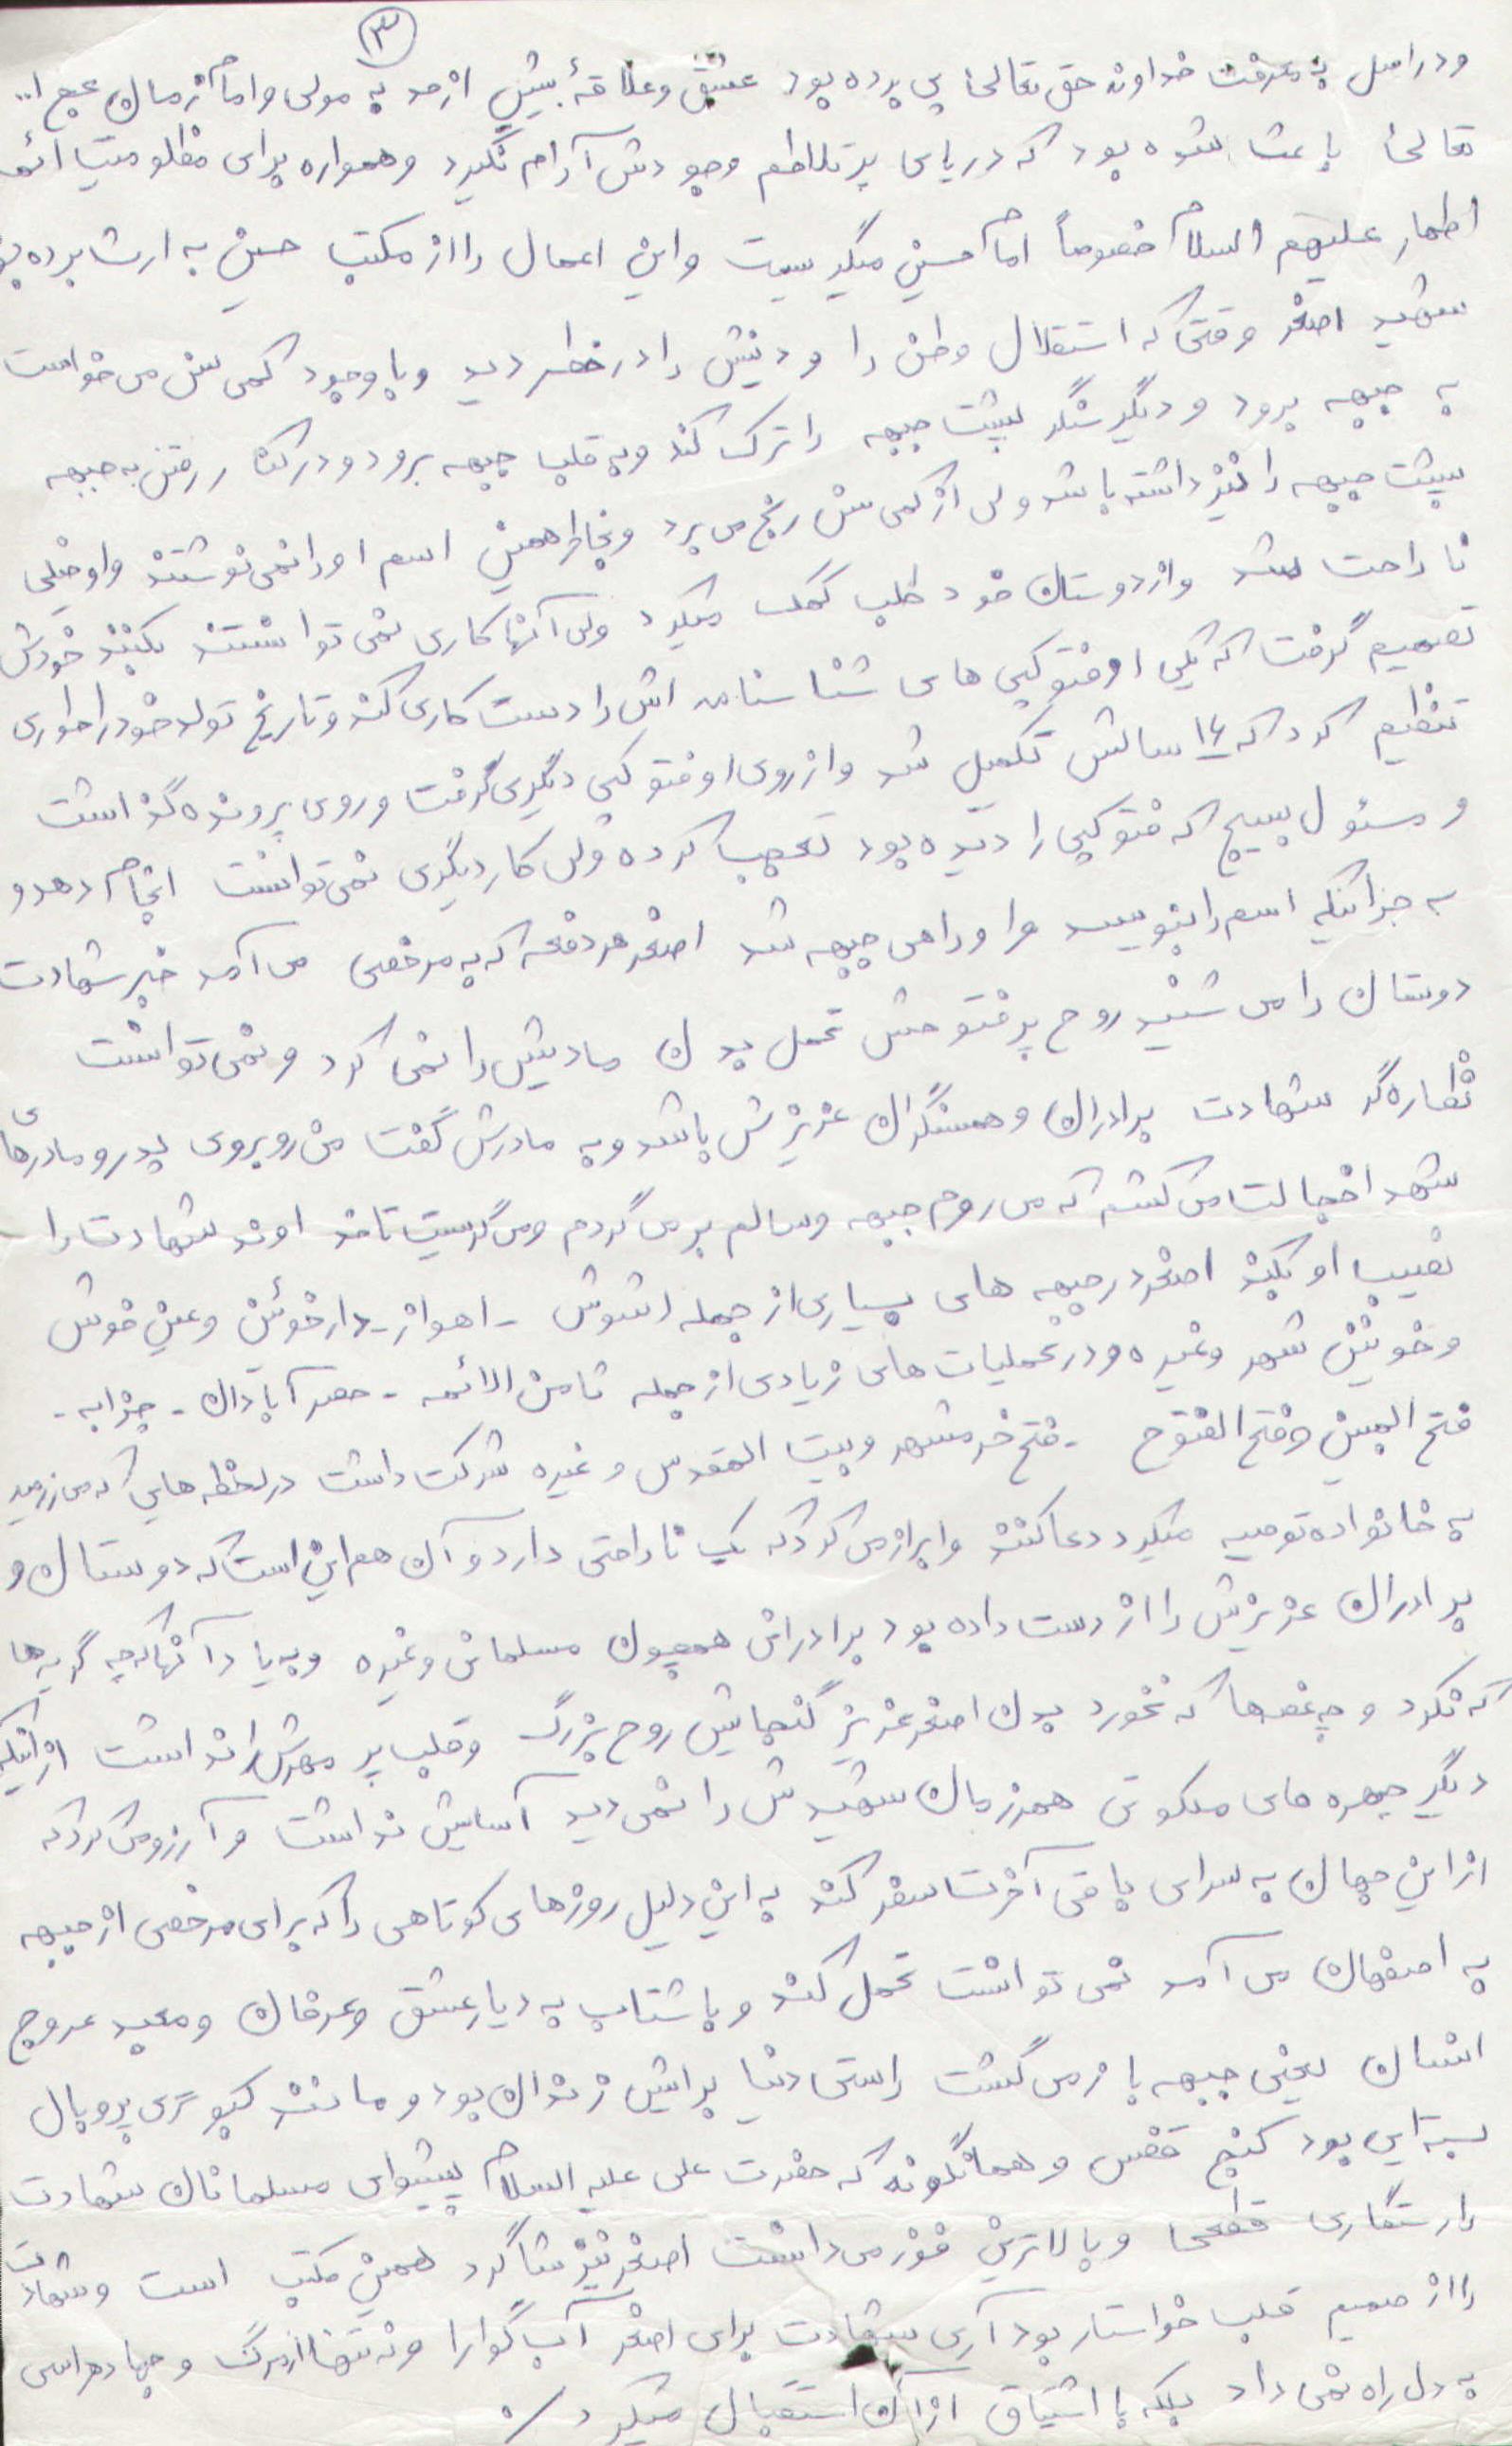 ۳
و در اصل به معرفت خداوند حق تعالی پی برده بود عشق و علاقهٔ بیش از حد به مولی و امام زمان عج ا..
تعالی باعث شده بود که دریای پر تلاطم وجودش آرام نگیرد و همواره برای مظلومیت ائمه
اطهار علیهم السلام خصوصاً امام حسین میگریست و این اعمال را از مکتب حسین به ارث برده بود
شهید اصغر وقتی که استقلال وطن را و دینش را در خطر دید و با وجود کمی سن می خواست
به جبهه برود و دیگر سنگر پشت جبهه را ترک کند و به قلب جبهه برود و در کنار رفتن به جبهه
پشت جبهه را نیز داشته باشد ولی از کمی سن رنج می برد و بخاطر همین اسم او را نمی نوشتند و او خیلی
ناراحت شد و از دوستان خود طلب کمک میکرد ولی آنها کاری نمی توانستند بکنند خودش
تصمیم گرفت که یکی از فتوکپی های شناسنامه اش را دست کاری کند و تاریخ تولد خود را طوری
تنظیم کرد که ۱۶ سالش تکمیل شد و از روی او فتوکپی دیگری گرفت و روی پرونده گذاشت
و مسئول بسیج که فتوکپی را دیده بود تعجب کرده ولی کار دیگری نمی توانست انجام دهد و
به جز اینکه اسم را بنویسد و او راهی جبهه شد اصغر هر دفعه که به مرخصی می آمد خبر شهادت
دوستان را می شنید روح پر فتوحش تحمل بدن مادیش را نمی کرد و نمی توانست
نظاره گر شهادت برادران و همسنگران عزیزش باشد و به مادرش گفت من روبروی پدر و مادرهای
شهدا خجالت می کشم که می روم جبهه و سالم بر می گردم و می گریست تا خداوند شهادت را
نصیب او بکند اصغر در جبهه های بسیاری از جمله شوش - اهواز - دارخوئن و عین خوش
و خونین شهر و غیره و در عملیات های زیادی از جمله ثامن الائمه - حصر آبادان - چزابه -
فتح المبین و فتح الفتوح - فتح خرمشهر و بیت المقدس و غیره شرکت داشت در لحظه هایی که می رزمید
به خانواده توصیه میکرد دعا کنند و ابراز می کرد که یک ناراحتی دارد و آن هم این است که دوستان و
برادران عزیزش را از دست داده بود برادرانی همچون مسلمانی و غیره و به یاد آنها که چه گریه ها
که نکرد و چه غصه ها که نخورد بدن اصغر عزیز گنجایش روح بزرگ و قلب پر مهرش را نداشت از اینکه
دیگر چهره های ملکوتی همرزمان شهیدش را نمی دید آسایش نداشت و آرزو می کرد که
از این جهان به سرای باقی آخرت سفر کند به این دلیل روزهای کوتاهی را که برای مرخصی از جبهه
به اصفهان می آمد نمی توانست تحمل کند و با شتاب به دیار عشق و عرفان و معبد عروج
انسان یعنی جبهه باز می گشت راستی دنیا برایش زندان بود و مانند کبوتری پر و بال
بسته ای بود کنج قفس و همانگونه که حضرت علی علیه السلام پیشوای مسلمانان شهادت
را رستگاری قطعی و بالاترین فوز می دانست اصغر نیز شاگرد همین مکتب است و شهادت
را از صمیم قلب خواستار بود آری شهادت برای اصغر آب گوارا و نه تنها از مرگ و جهاد هراسی
به دل راه نمی داد بلکه با اشتیاق از آن استقبال میکرد ./